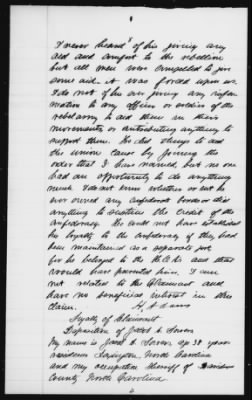 I never heard of his giving any
aid and comfort to the rebellion
but all men were compelled to give
some aid. It was forced upon us.
I do not of his ever giving any infor
mation to any officer or soldier of the
rebel army to aid them in their
movements or contributing anything to
support them. He did always to aid
the union cause by joining the
order that I have named, but no one
had an opportunity to do anything
much. I do not know whether or not he
ever owned any confederate bonds or did
anything to sustain the credit of the
confederacy. He could not have established
his loyalty to the confederacy if they had
been maintained as a separate govt
for he belonged to the H.O.A. and that
would have prevented him. I am
not related to the Claimant and
have no beneficial interest in this
claim. H. Adams
Loyalty of Claimant
Deposition of Jacob A. Sowers
My name is Jacob A. Sowers age 38 years
residence Lexington, North Carolina
and my occupation Sheriff of Davidson
County North Carolina